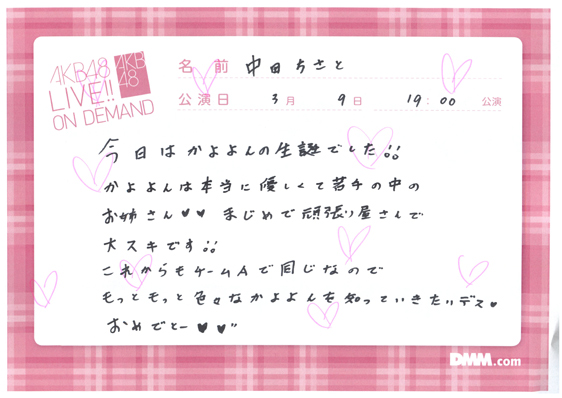 AKB48
LIVE!!
ON DEMAND
AKB
48
名 前 中田ちさと
公演日 3月 9日 19:00 公演
今日はかよよんの生誕でした!!
かよよんは本当に優しくて若手の中の
お姉さん♥♥ まじめで頑張り屋さんで
大スキです!!
これからもチームAで同じなので
もっともっと色々なかよよんを知っていきたいデス♥
おめでとー♥♥"
DMM.com